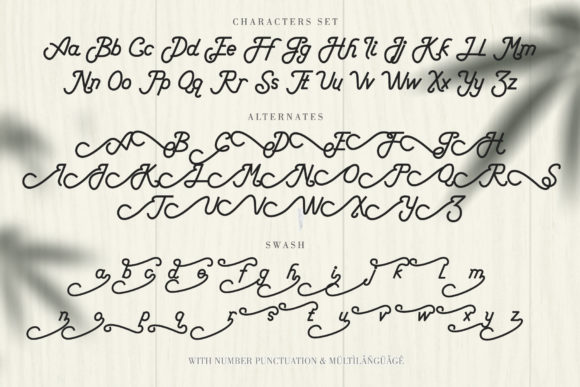 CHARACTERS SET
Aa Bb Cc Dd Ee Ff Gg Hh Ii Jj Kk Ll Mm
Nn Oo Pp Qq Rr Ss Tt Uu Vv Ww Xx Yy Zz
ALTERNATES
A B C D E F G H
I J K L M N O P Q R S
T U V W X Y Z
SWASH
a b c d e f g h i j k l m
n o p q r s t u v w x y z
WITH NUMBER PUNCTUATION & MÜLTÌLÂÑGÜÃGÊ